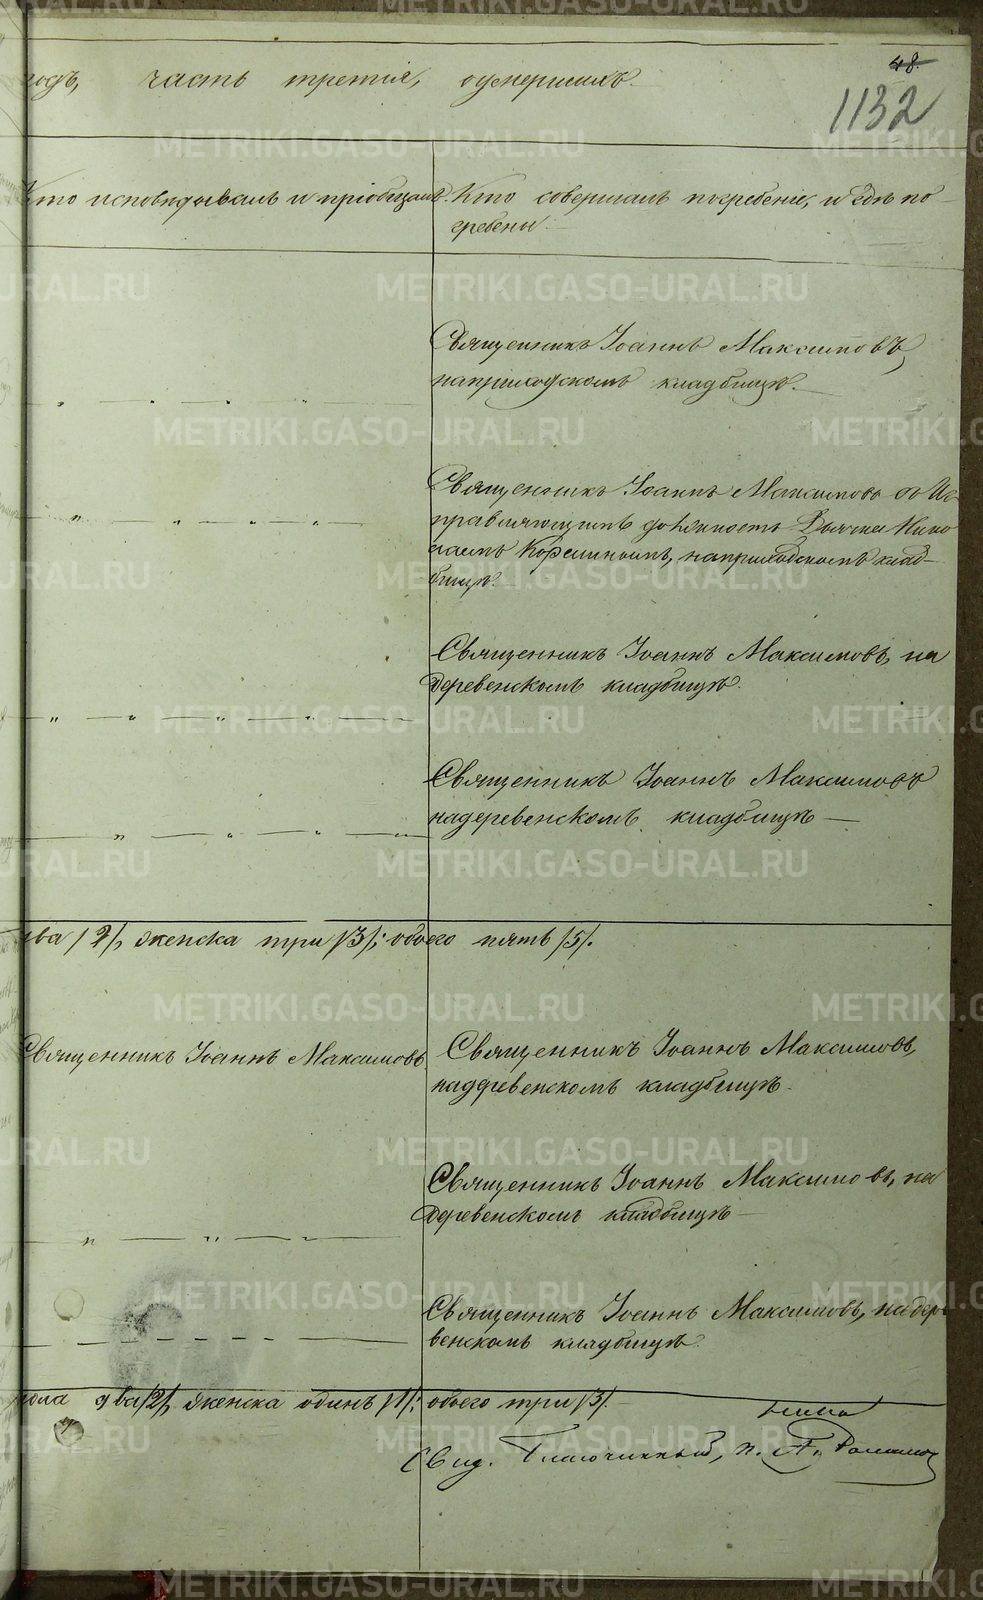 48
1132
годъ, часть третія, о умершихъ.
Кто исповѣдывалъ и пріобщалъ.
Кто совершалъ погребеніе, и гдѣ по-
гребены.
Священникъ Іоаннъ Максимовъ,
наприходскомъ кладбищѣ.
Священникъ Іоаннъ Максимовъ съ Ис-
правляющимъ должность Дьячка Нико
лаемъ, наприходскомъ клад-
бищѣ.
Священникъ Іоаннъ Максимовъ, на
деревенскомъ кладбищѣ.
Священникъ Іоаннъ Максимовъ
надеревенскомъ кладбищѣ —
два /2/, женска три /3/; обоего пять /5/.
Священникъ Іоаннъ Максимовъ
Священникъ Іоаннъ Максимовъ,
надеревенскомъ кладбищѣ.
Священникъ Іоаннъ Максимовъ, на
деревенскомъ кладбищѣ —
Священникъ Іоаннъ Максимовъ, надере
венскомъ кладбищѣ.
пола два /2/, женска одинъ /1/; обоего три /3/.
Свид. Благочинный, п. А.
METRIKI.GASO-URAL.RU